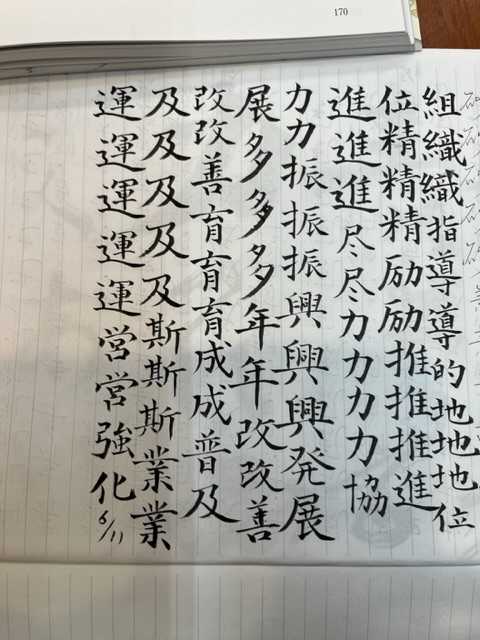 170
組織織指導導的地地地位
位精精精励励推推推進
進進進尽尽力力力力協
力力振振振興興興発展
展多多多多年年改改善
改改善育育育成成普及
及及及及及斯斯斯業業
運運運運運営営強化
6/11